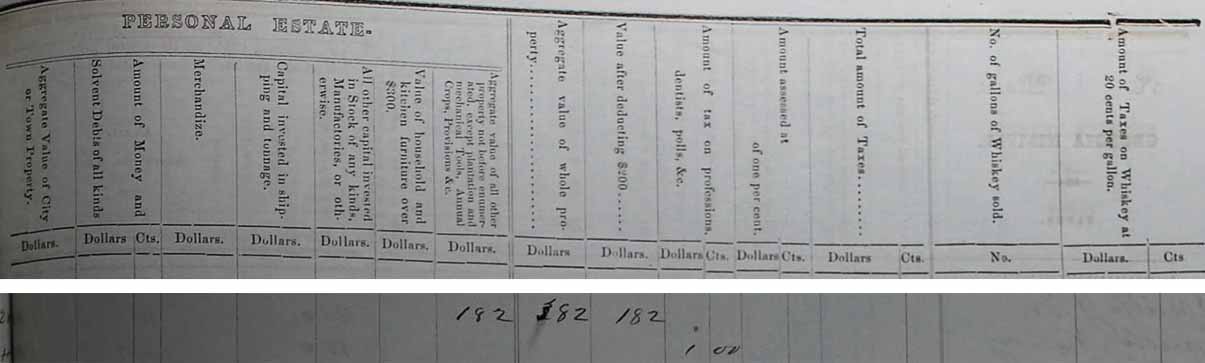 PERSONAL ESTATE.
Aggregate Value of City
or Town Property.
Solvent Debts of all kinds
Amount of Money and
Merchandize.
Capital invested in ship-
ping and tonnage.
All other capital invested
in Stock of any kinds,
Manufactories, or oth-
erwise.
Value of household and
kitchen furniture over
$300.
Aggregate value of all other
property not before enumer-
ated, except plantation and
mechanical Tools, Annual
Crops, Provisions &c.
Aggregate value of whole pro-
perty
Value after deducting $200
Amount of tax on professions,
dentists, polls, &c.
Amount assessed at
of one per cent.
Total amount of Taxes
No. of gallons of Whiskey sold.
Amount of Taxes on Whiskey at
20 cents per gallon.
Dollars. Dollars Cts. Dollars. Dollars. Dollars. Dollars. Dollars. Dollars Dollars. Dollars Cts. Dollars Cts. Dollars Cts. No. Dollars. Cts
182 182 182
1 00